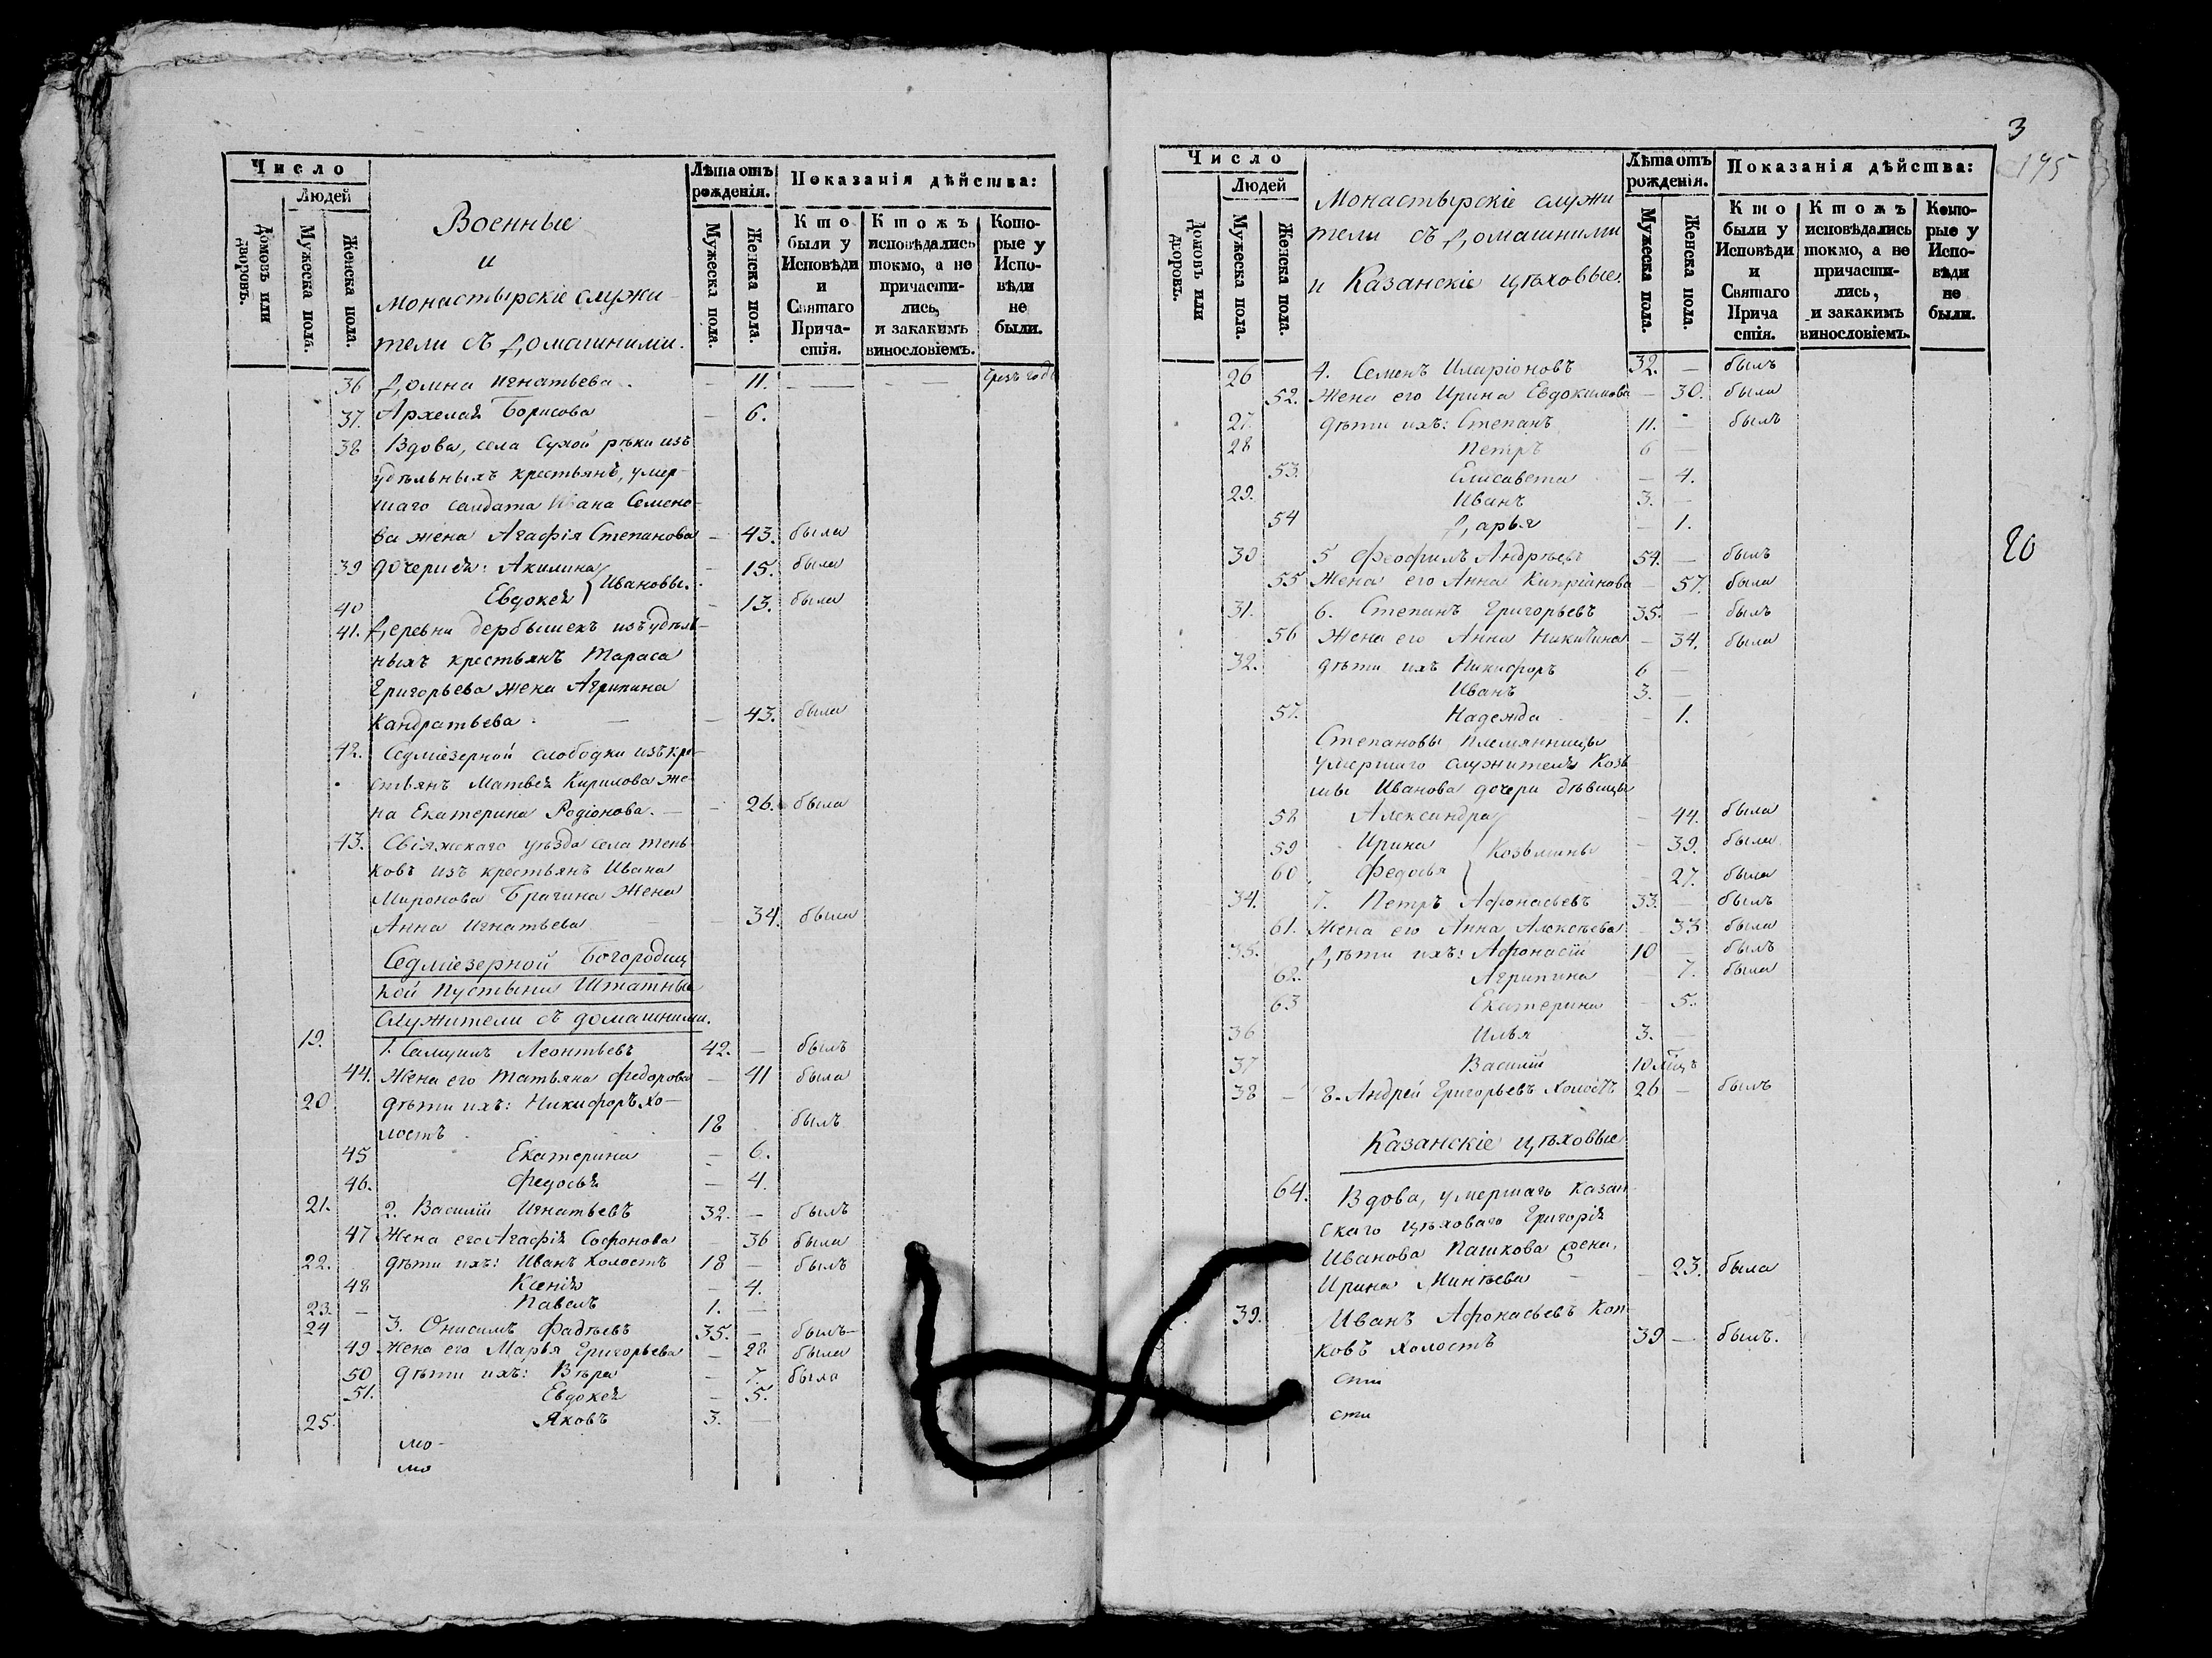 Число
Людей
Домовъ или дворовъ.
Мужеска пола.
Женска пола.
Военные
и
монастырскіе служи-
тели съ домашними.
Лѣта отъ рожденія.
Мужеска пола.
Женска пола.
Показанія дѣйства:
Кто были у Исповѣди и Святаго Прича-стія.
Ктожъ исповѣдались токмо, а не причасти-лись, и закакимъ винословіемъ.
Кото-рые у Испо-вѣди не были.
36 Домна Игнатьева. — 11. — —
37. Архелая Борисова — 6.
38 Вдова, села Сухой рѣки изъ
удѣльныхъ крестьянъ, умер-
шаго салдата Ивана Семено-
ва жена Агафія Степанова — 43. была
39 дочери ея: Акилина — 15. была
40 Евдокея } Ивановы. — 13. была
41. Деревни Дербышекъ изъ удѣль-
ныхъ крестьянъ Тараса
Григорьева жена Агрипина
Кандратьева. — — 43. была
42. Седміезерной слободки изъ кре-
стьянъ Матвея Кирилова же-
на Екатерина Родіонова. — — 26. была
43. Свіяжскаго уѣзда села Тень-
ковъ изъ крестьянъ Ивана
Миронова Брагина жена
Анна Игнатьева — — 34. была
Седміезерной Богородиц
кой Пустыни Штатные
Служители съ домашними.
19. 1. Леонтьевъ 42. — былъ
44. Жена его Татьяна Федорова — 41 была
20 дѣти ихъ: Никифоръ хо-
лостъ 18 былъ
45 Екатерина — 6.
46. Федосья — 4.
21. 2. Василій Игнатьевъ 32. — былъ
47 Жена его Агафія Софонова 36 была
22. дѣти ихъ: Иванъ холостъ 18 — былъ
48 Ксенія — 4.
23. — Павелъ 1. —
24 3. Онисимъ Фадѣевъ 35. — былъ—
49 Жена его Марья Григорьева — 28 была
50 дѣти ихъ: Вѣра — 7. была
51. Евдокея — 5.
25. Яковъ 3. —
мо-
мо
3
195
Число
Людей
Домовъ или дворовъ.
Мужеска пола.
Женска пола.
Монастырскіе служи
тели съ домашними
и Казанскіе цѣховые.
Лѣта отъ рожденія.
Мужеска пола.
Женска пола.
Показанія дѣйства:
Кто были у Исповѣди и Святаго Прича стія.
Ктожъ исповѣдались токмо, а не причасти-лись, и закакимъ винословіемъ.
Кото-рые у Испо-вѣди не были.
26 4. Семенъ Иларіоновъ 32. — былъ
52. Жена его Ирина Евдокимова — 30. была
27. дѣти ихъ: Степанъ 11. — былъ
28 Петръ 6 —
53. Елисавета — 4.
29. Иванъ 3. —
54 Дарья — 1.
20
30 5 Феофилъ Андрѣевъ 54. — былъ
55 Жена его Анна Кипріанова — 57. была
31. 6. Степанъ Григорьевъ 35. — былъ
56 Жена его Анна Никитина — 34. была
32. дѣти ихъ Никифоръ 6 —
Иванъ 3. —
57. Надежда — 1.
Степановы племянницы
умершаго служителя Козь
мы Иванова дочери дѣвицы
58 Александра — 44. была
59 Ирина } Козьмины — 39. была
60 Федосья — 27. была
34. 7. Петръ Афонасьевъ 33. — былъ
61. Жена его Анна Алексѣева 33 была
35. Дѣти ихъ: Афонасій 10 — былъ
62. Агрипина — 7. была
63 Екатерина — 5.
36 Илья 3. —
37 Василій 10 мцъ
38 — 8. Андрей Григорьевъ холостъ 26 — былъ
Казанскіе цѣховые
64. Вдова, умершаго Казан
скаго цѣховаго Григорія
Иванова Пашкова жена,
Ирина Минѣева — — 23. была
39. Иванъ Афонасьевъ Коп
ковъ холостъ 39 — былъ.
сти
сти